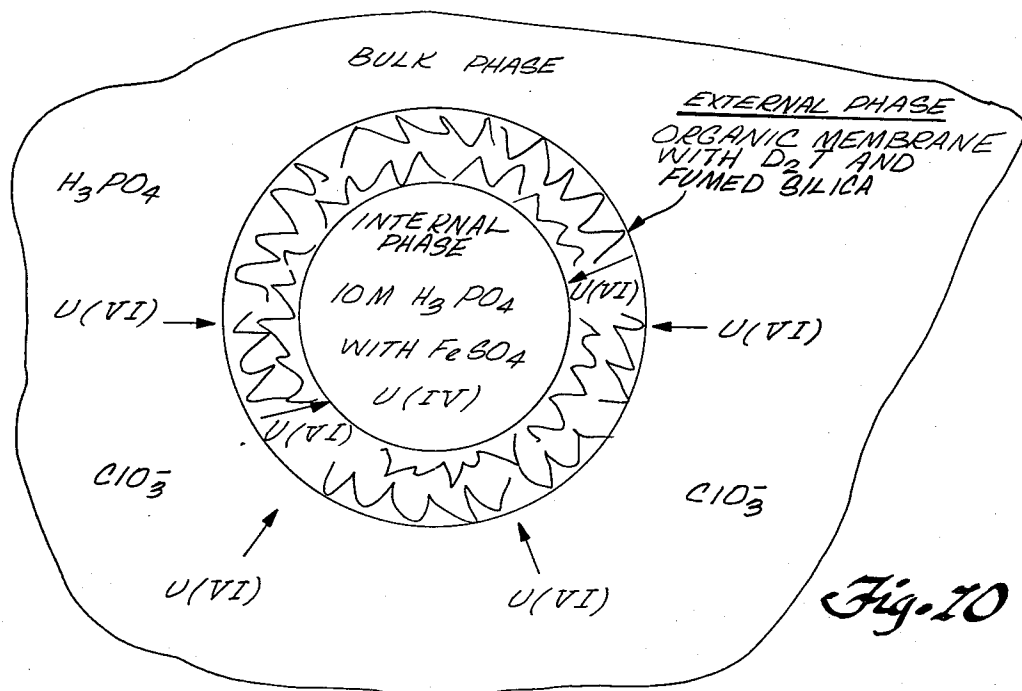 BULK PHASE
EXTERNAL PHASE
ORGANIC MEMBRANE
WITH D₂T AND
FUMED SILICA
H₃PO₄
INTERNAL
PHASE
10M H₃PO₄
WITH FeSO₄
U(IV)
U(VI)
U(VI)
U(VI)
U(VI)
ClO₃⁻
ClO₃⁻
U(VI)
U(VI)
Fig. 10